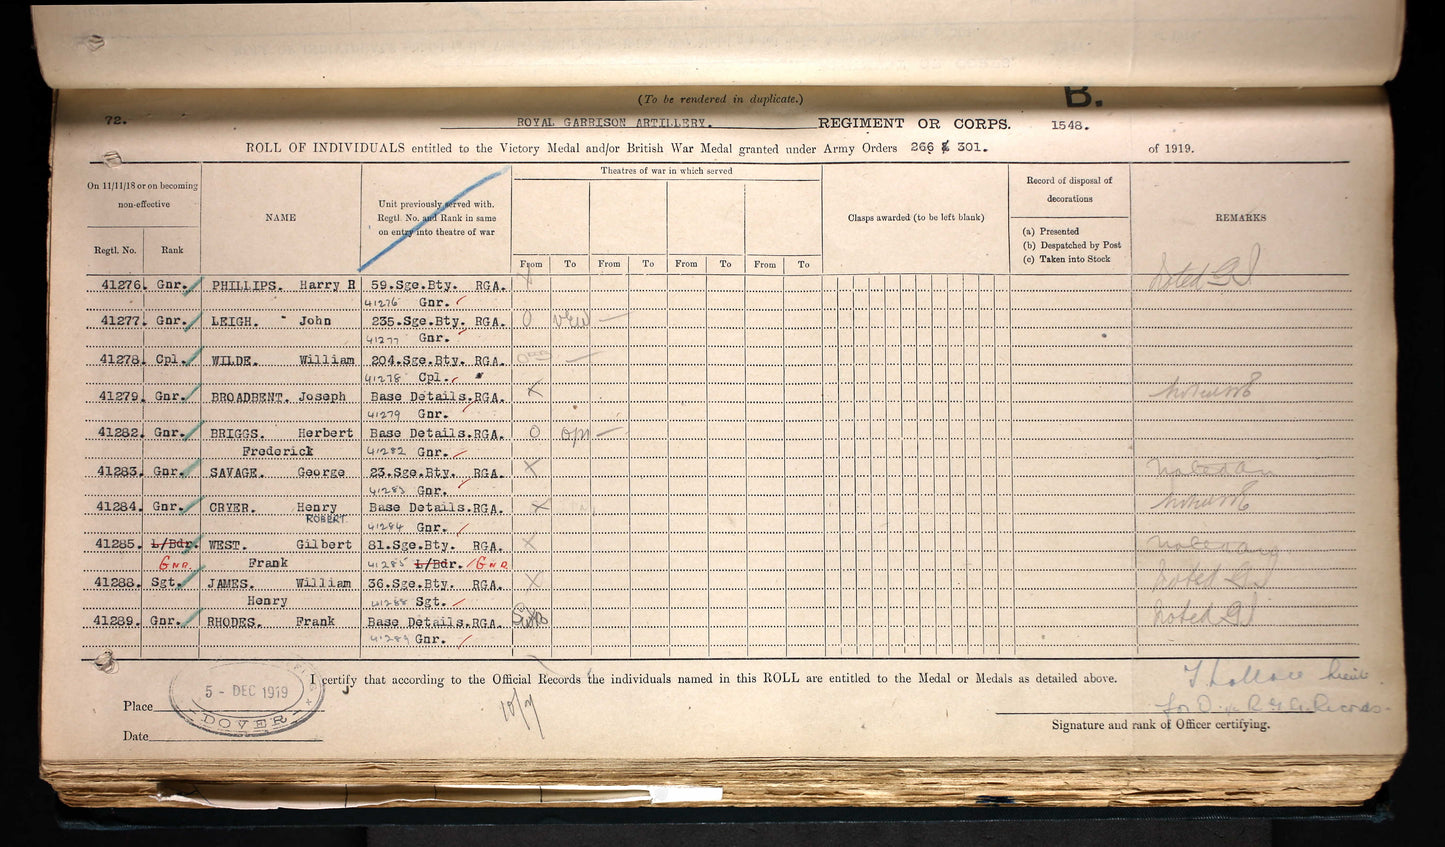 (To be rendered in duplicate.)
B.
72.
ROYAL GARRISON ARTILLERY. REGIMENT OR CORPS. 1548.
ROLL OF INDIVIDUALS entitled to the Victory Medal and/or British War Medal granted under Army Orders 266 & 301. of 1919.
On 11/11/18 or on becoming non-effective
Regtl. No. Rank
NAME
Unit previously served with. Regtl. No. and Rank in same on entry into theatre of war
Theatres of war in which served
From To From To From To From To
Clasps awarded (to be left blank)
Record of disposal of decorations
(a) Presented
(b) Despatched by Post
(c) Taken into Stock
REMARKS
41276. Gnr. PHILLIPS. Harry R 59.Sge.Bty. RGA. X Noted
41276 Gnr.
41277. Gnr. LEIGH. John 235.Sge.Bty. RGA. O
41277 Gnr.
41278. Cpl. WILDE. William 204.Sge.Bty. RGA.
41278 Cpl.
41279. Gnr. BROADBENT. Joseph Base Details.RGA. X
41279 Gnr.
41282. Gnr. BRIGGS. Herbert Base Details.RGA. O
Frederick 41282 Gnr.
41283. Gnr. SAVAGE. George 23.Sge.Bty. RGA. X
41283 Gnr.
41284. Gnr. CRYER. Henry Base Details.RGA. X
ROBERT 41284 Gnr.
41285. L/Bdr. WEST. Gilbert 81.Sge.Bty. RGA. X
GNR. Frank 41285 L/Bdr. GNR
41288. Sgt. JAMES. William 36.Sge.Bty. RGA. X Noted
Henry 41288 Sgt.
41289. Gnr. RHODES. Frank Base Details.RGA. Noted
41289 Gnr.
I certify that according to the Official Records the individuals named in this ROLL are entitled to the Medal or Medals as detailed above.
5 - DEC 1919
DOVER
Place
Date
Lieut.
for RGA Records.
Signature and rank of Officer certifying.